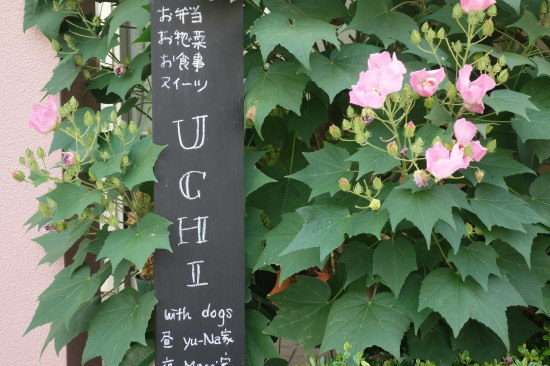 お弁当
お惣菜
お食事
スイーツ
UCHI
with dogs
昼 yu-Na家
夜